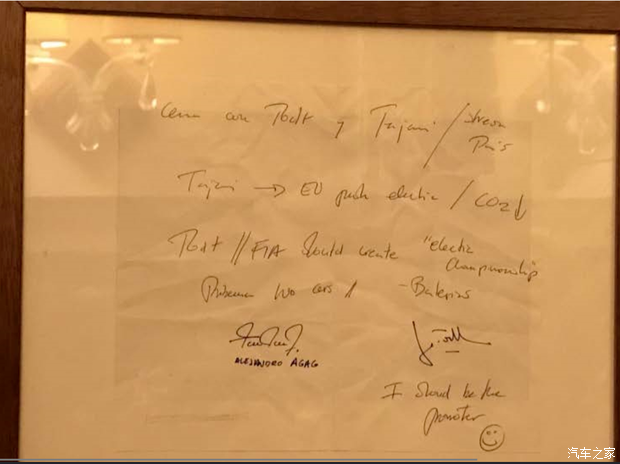 Cena con Todt y Tajani / Stresa
Paris
Tajani → EU push electric / CO2↓
Todt // FIA should create "electric
Championship"
Problema no cars // - Baterias
ALEJANDRO AGAG
I should be the
promoter
汽车之家